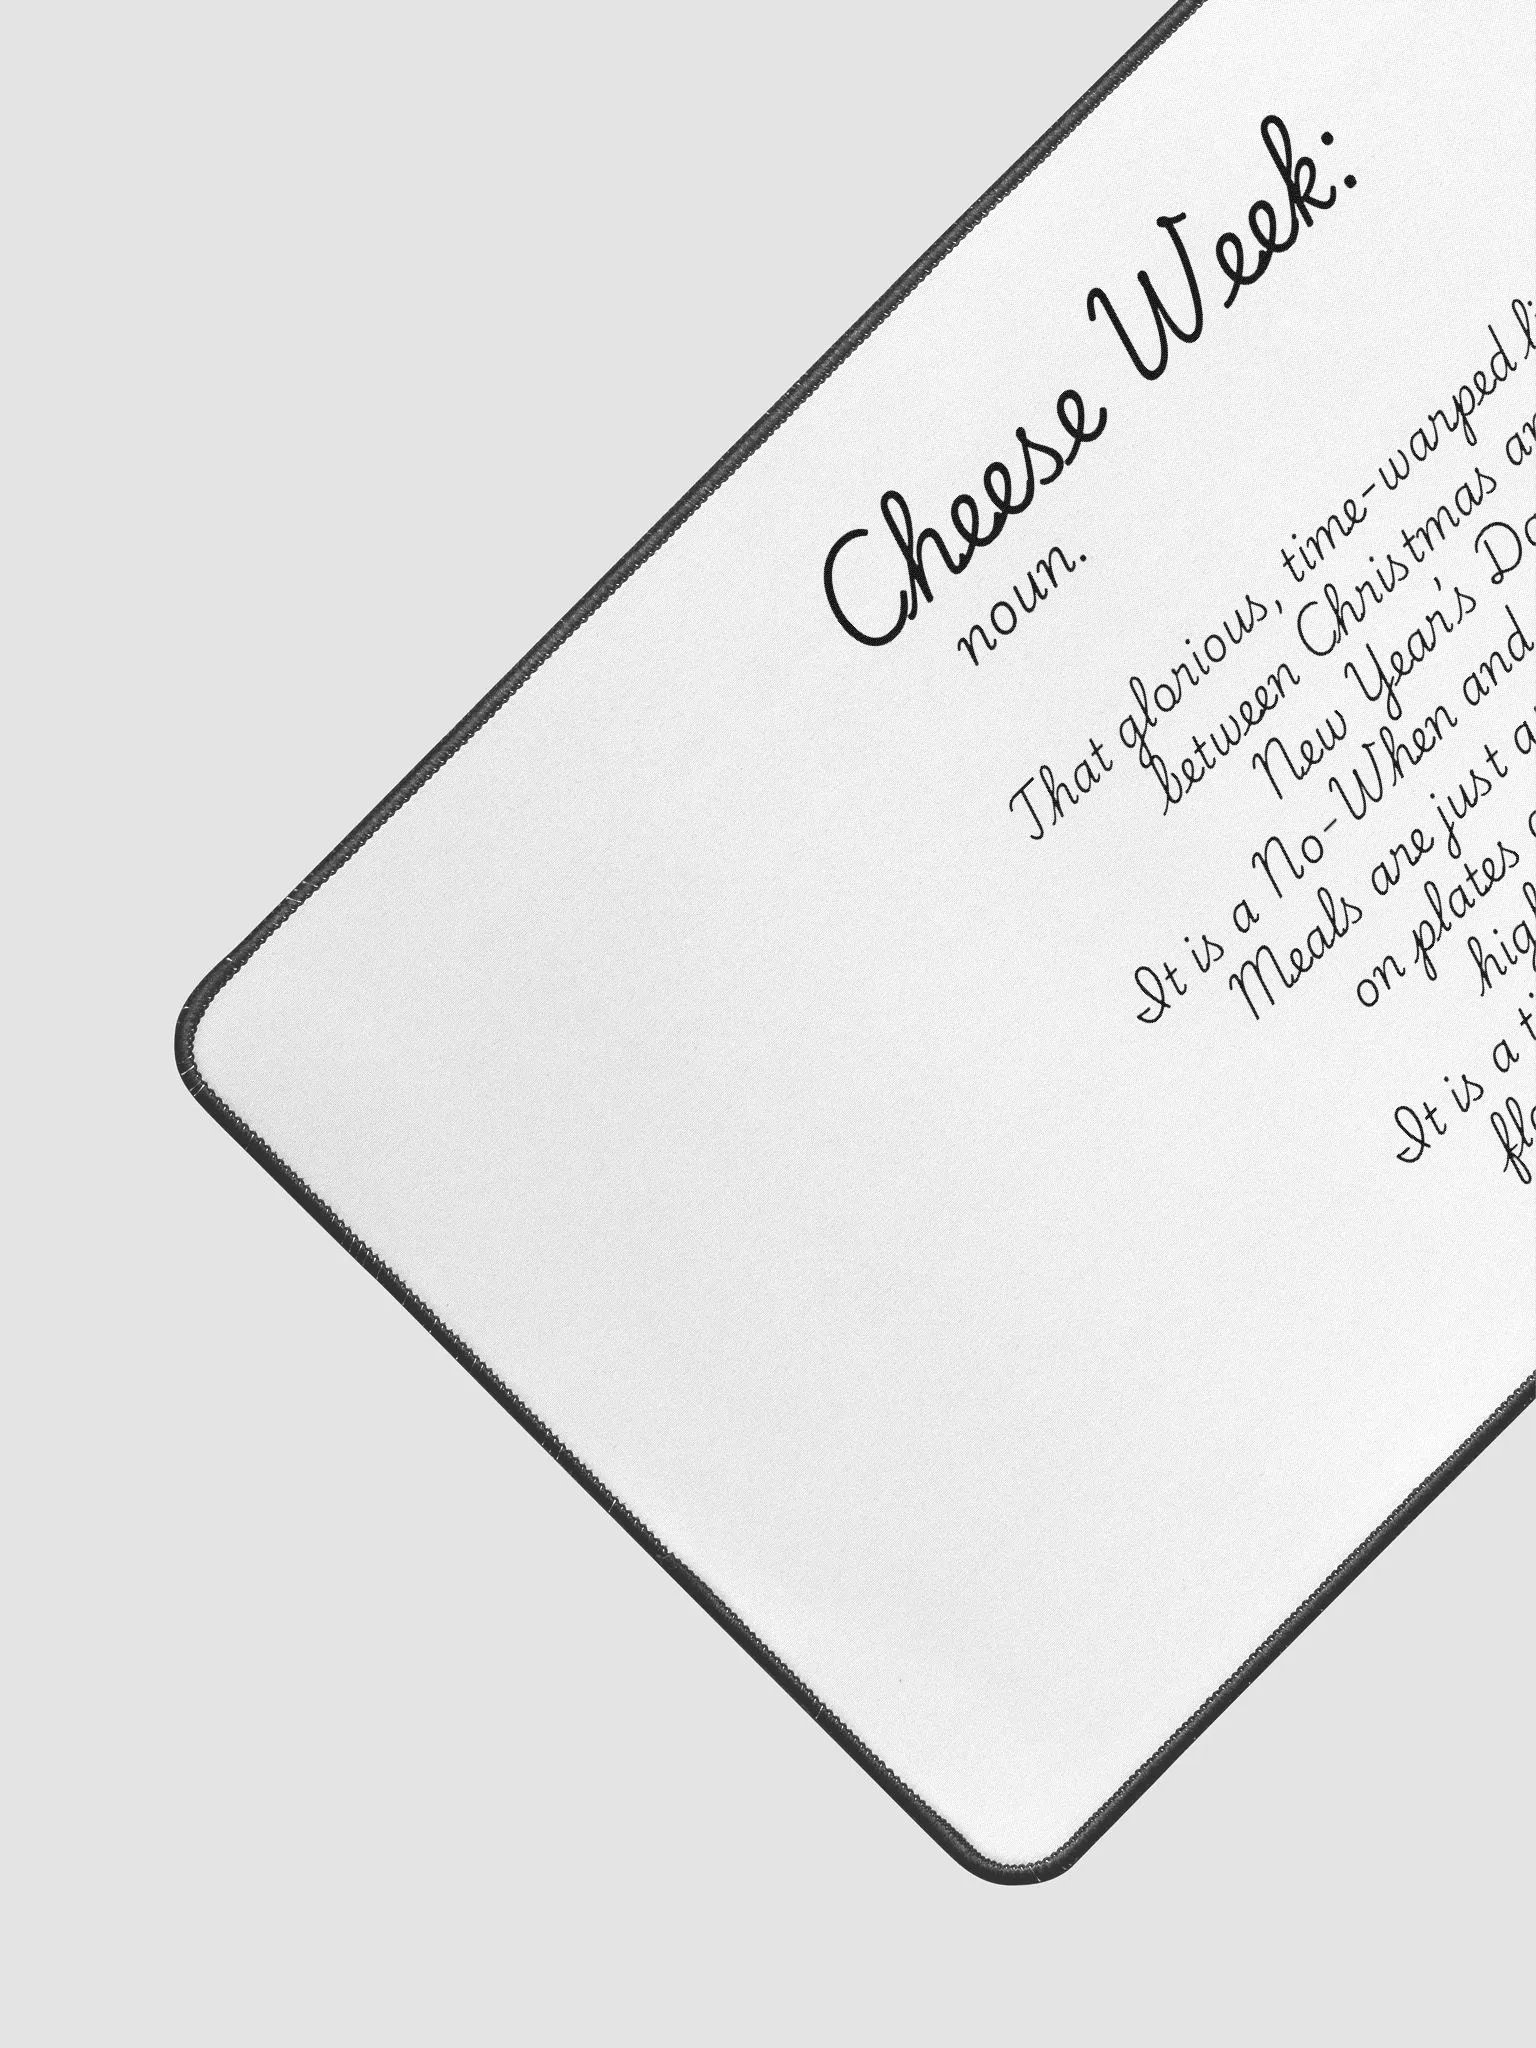 Cheese Week:
noun.
That glorious, time-warped
between Christmas
New Year's
It is a No-When and
Meals are just
on plates
It is a